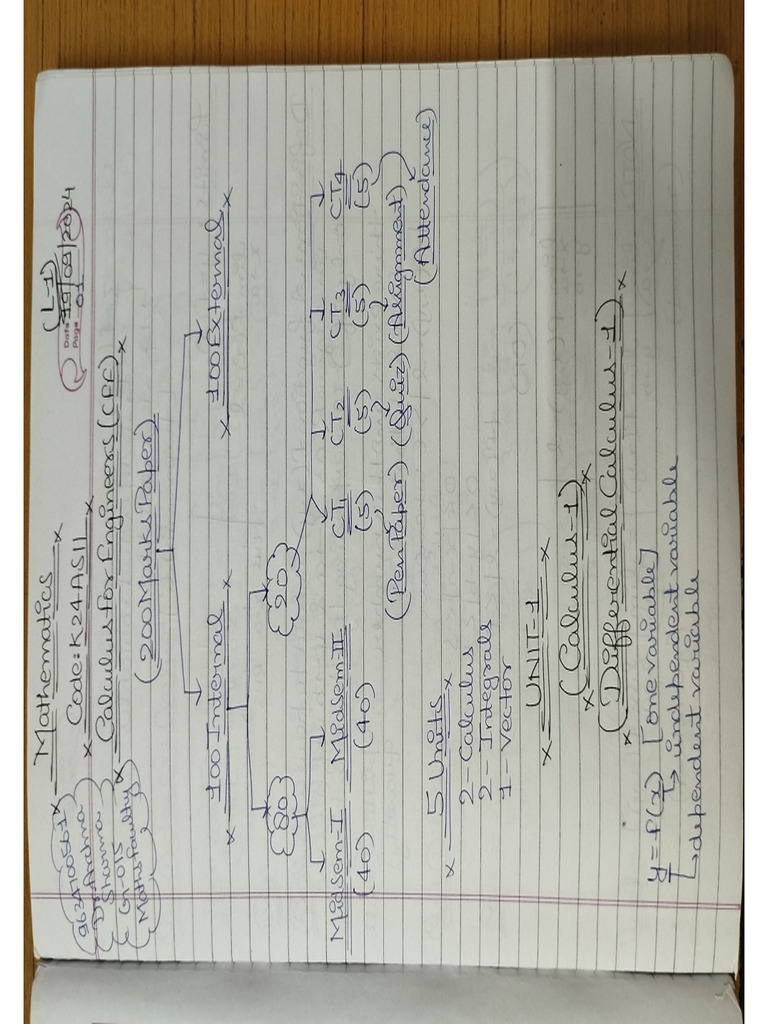 (L-1)
Mathematics
Date 19/09/2024
Page 01
Code: K24AS11
Calculus For Engineers (CFE)
Sharma
G-015
Maths Faulty
(200 Marks Paper)
100 Internal
100 External
80
20
MidSem-I MidSem-II CT1 CT2 CT3 CT4
(40) (40) (5) (5) (5) (5)
(Pen Paper) (Quiz) (Assignment)
(Attendance)
5 Units
2 - Calculus
2 - Integrals
1 - Vector
UNIT-1
(Calculus-1)
(Differential Calculus-1)
y = f(x) [one variable]
independent variable
dependent variable